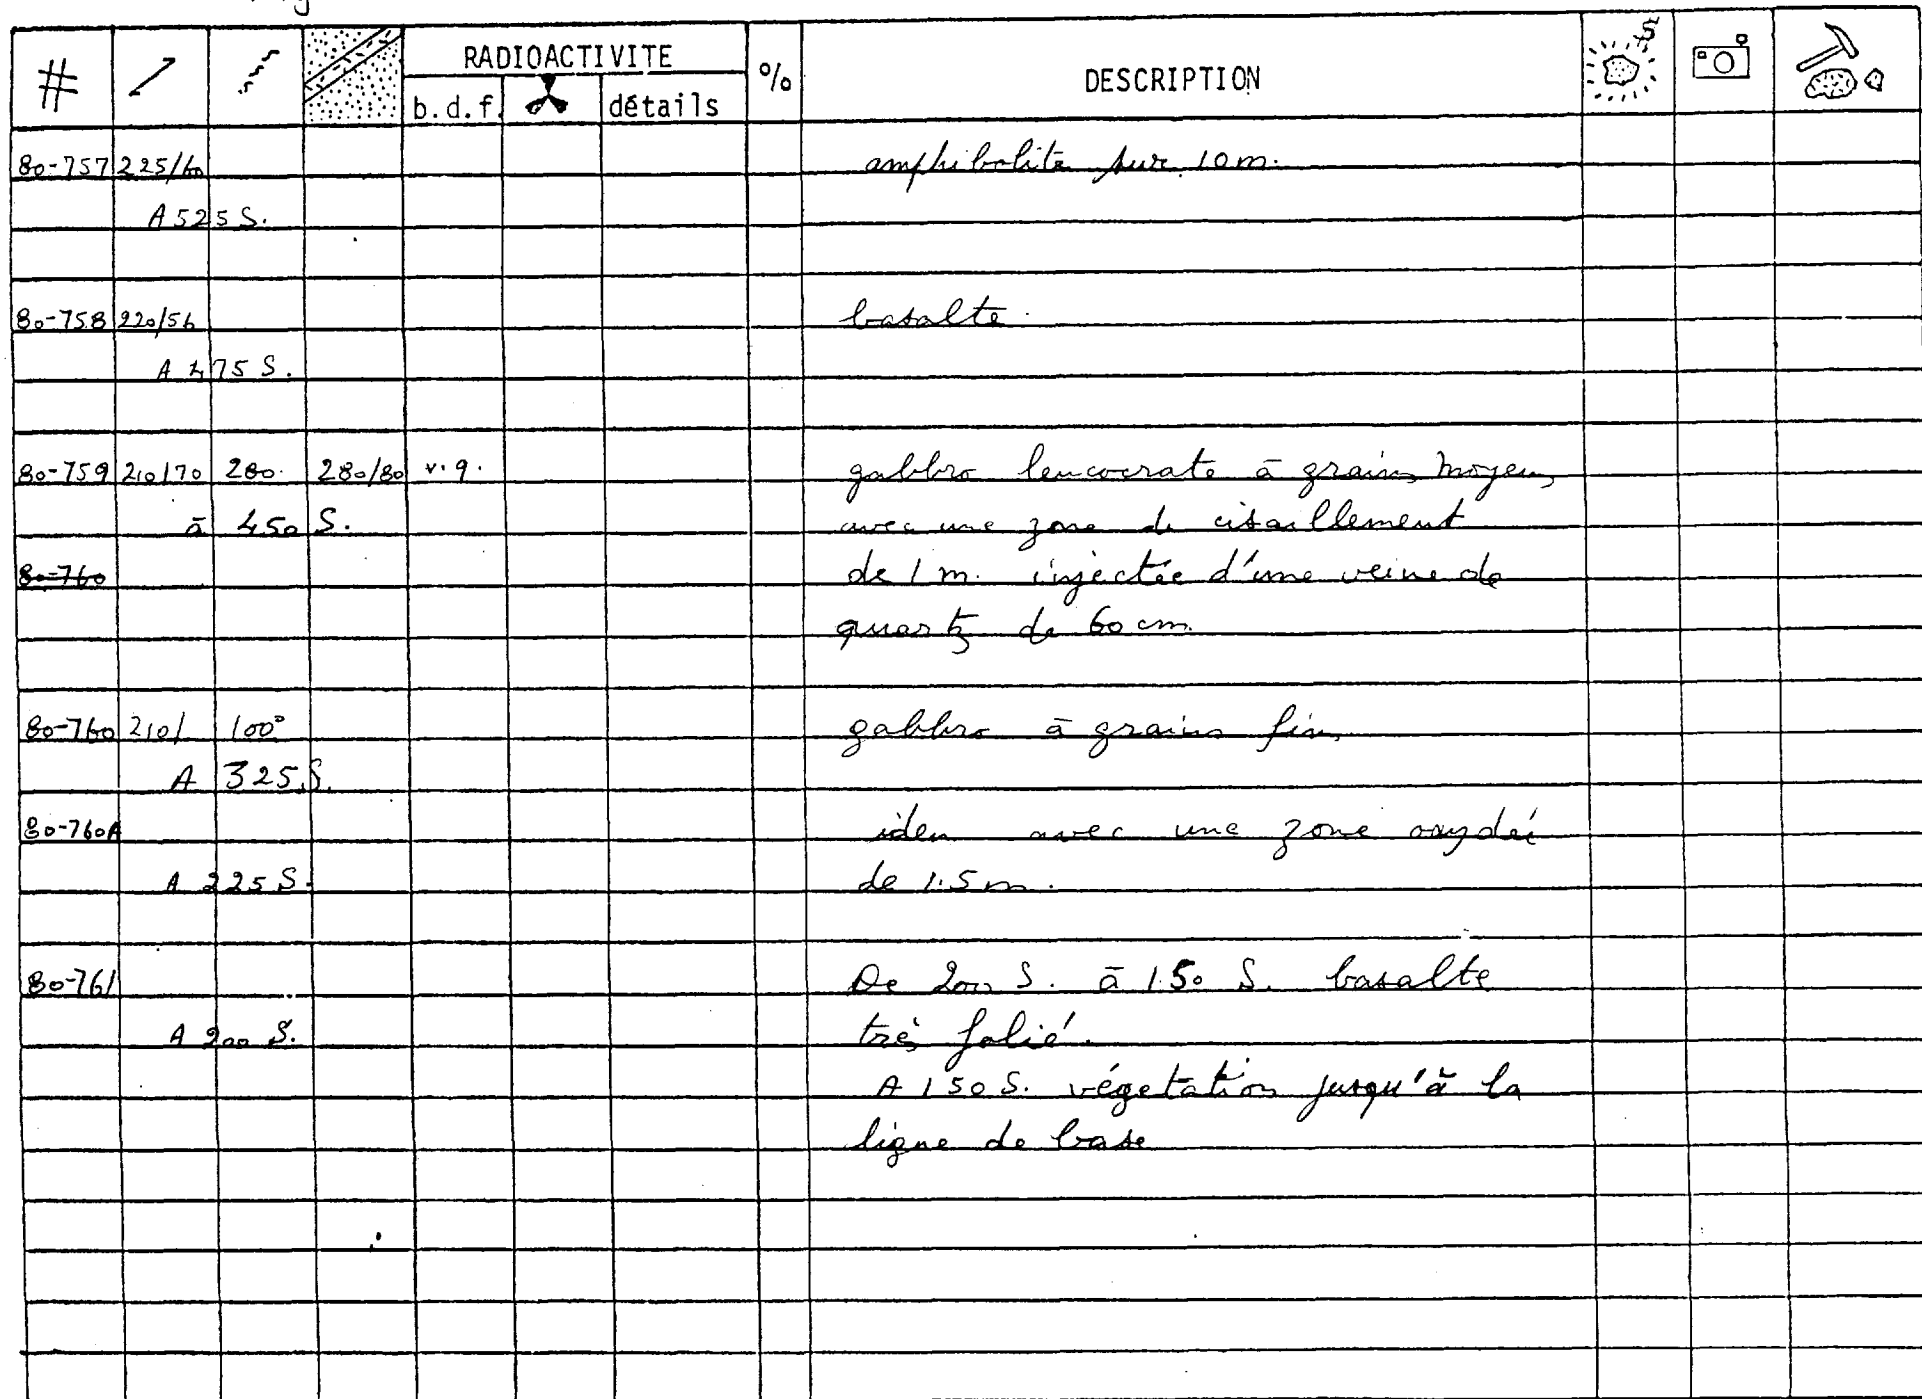 # RADIOACTIVITE % DESCRIPTION S
b.d.f. détails
80-757 225/60 amphibolite sur 10m.
A 525 S.
80-758 220/56 basalte.
A 475 S.
80-759 210/70 280. 280/80 v.q. gabbro leucocrate à grains moyens
à 450 S. avec une zone de cisaillement
80-760 de 1 m. injectée d'une veine de
quartz de 60 cm.
80-760 210/ 100° gabbro à grains fins
A 325 S.
80-760A idem avec une zone oxydée
A 225 S. de 1.5 m.
80-761 De 200 S. à 150 S. basalte
A 200 S. très folié.
A 150 S. végetation jusqu'à la
ligne de base